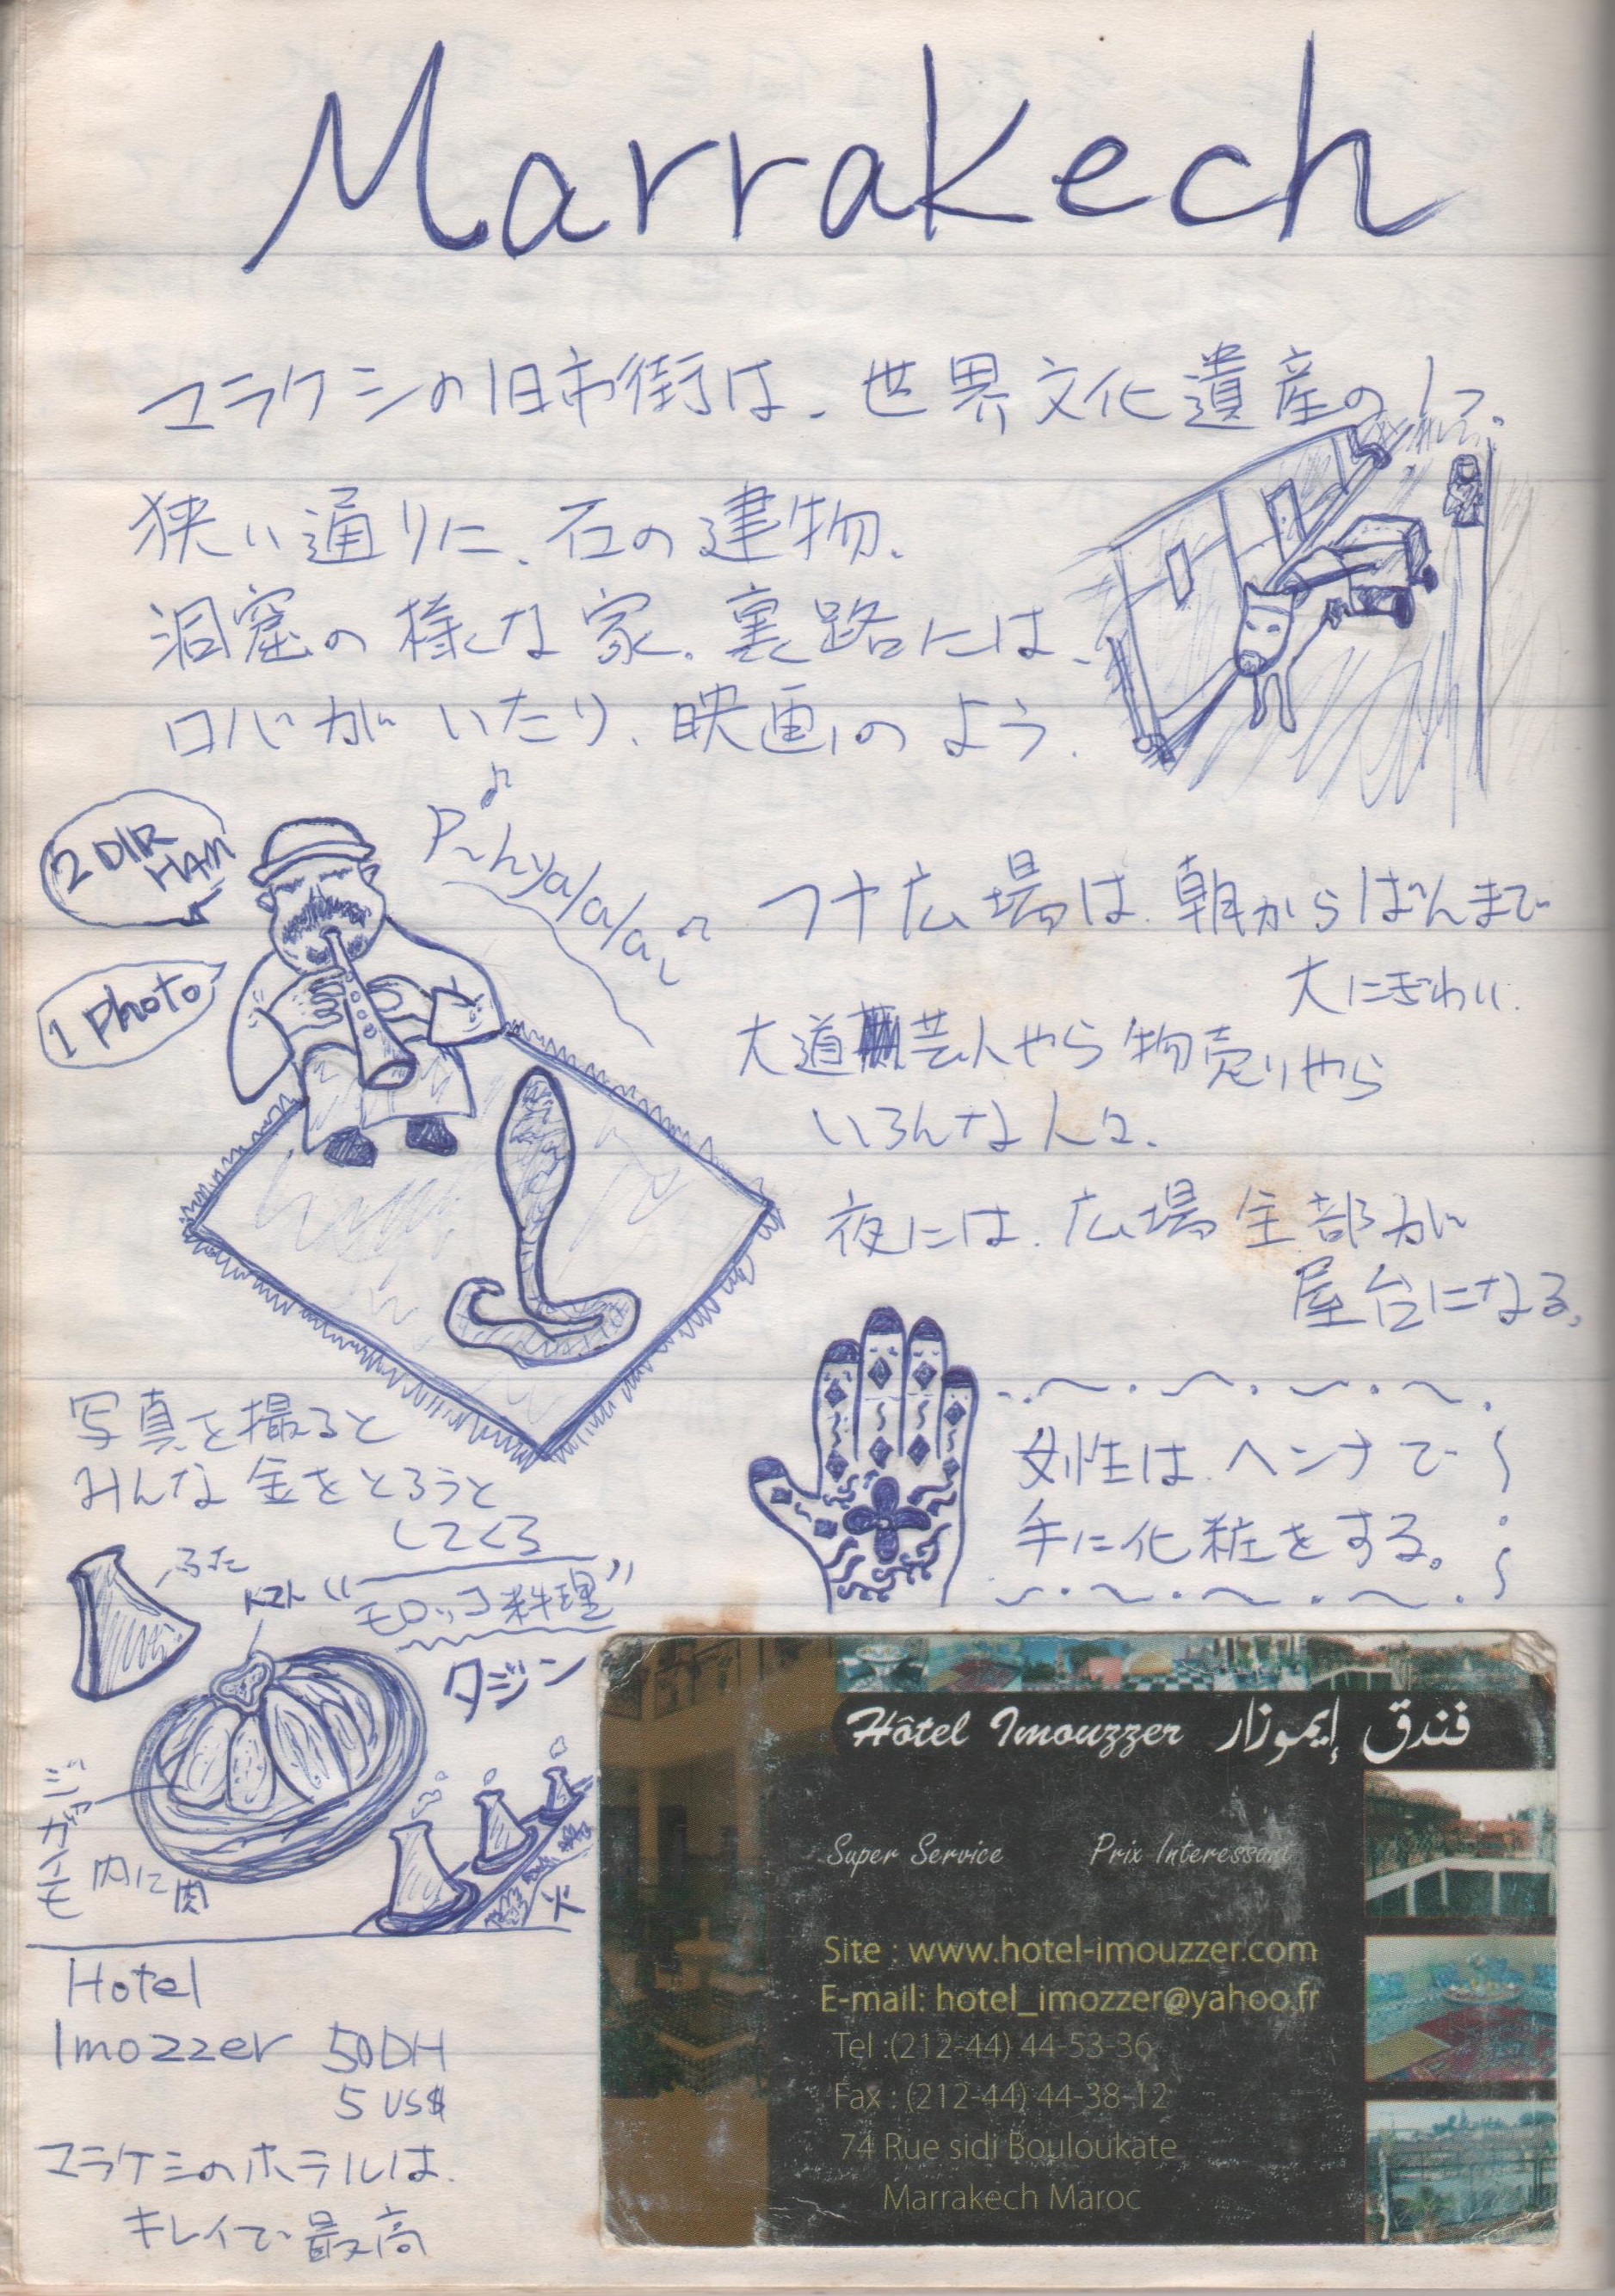 Marrakech
マラケシの旧市街は、世界文化遺産の1つ。
狭い通りに、石の建物、
洞窟の様な家。裏路には、
ロバがいたり、映画のよう。
2 DIR
HAM
1 photo
フナ広場は、朝からばんまで
大にぎわい。
大道芸人やら物売りやら
いろんな人々。
夜には、広場全部が
屋台になる。
写真を撮ると
みんな金をとろうと
してくる
女性は、ヘンナで
手に化粧をする。
ふた
トマト
"モロッコ料理"
タジン
ジャガイモ
内に肉
火
Hotel
Imozzer 50DH
5 US$
マラケシのホテルは、
キレイで最高
Hôtel Imouzzer فندق إيموزار
Super Service Prix Interessant
Site : www.hotel-imouzzer.com
E-mail: hotel_imozzer@yahoo.fr
Tel :(212-44) 44-53-36
Fax : (212-44) 44-38-12
74 Rue sidi Bouloukate
Marrakech Maroc